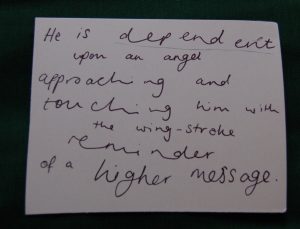 He is dependent
upon an angel
approaching and
touching him with
the wing-stroke
reminder
of a higher message.